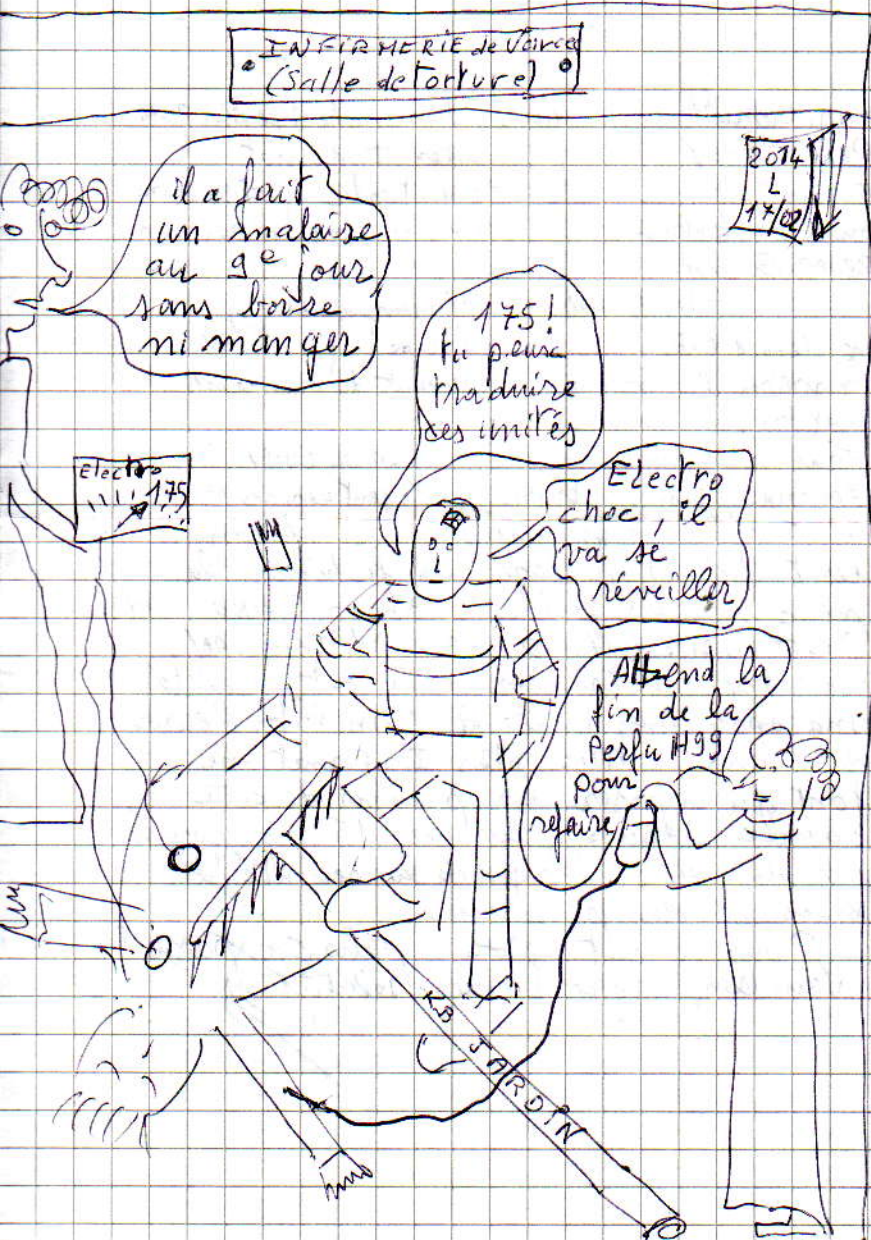 INFIRMERIE de
(Salle de torture)
2014
L
17/02
il a fait
un malaise
au 9e jour
sans boire
ni manger
175!
tu peux
traduire
ces unités
Electro
175
Electro
choc, il
va se
réveiller
Attend la
fin de la
Perfu H99
pour
refaire
KB JARDIN